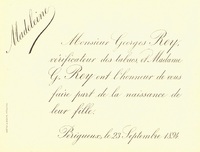 Madeleine
Monsieur Georges Rey,
vérificateur des tabacs et Madame
G. Rey ont l'honneur de vous
faire part de la naissance de
leur fille.
Périgueux, le 23 Septembre